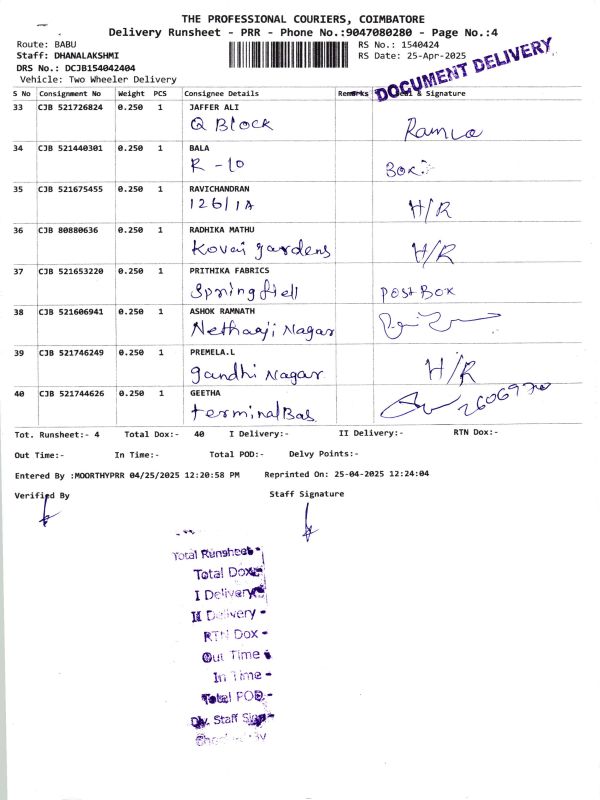 THE PROFESSIONAL COURIERS, COIMBATORE
Delivery Runsheet - PRR - Phone No.:9047080280 - Page No.:4
Route: BABU
Staff: DHANALAKSHMI
DRS No.: DCJB154042404
Vehicle: Two Wheeler Delivery
RS No.: 1540424
RS Date: 25-Apr-2025
DOCUMENT DELIVERY
S No Consignment No Weight PCS Consignee Details Remarks & Signature
33 CJB 521726824 0.250 1 JAFFER ALI
Q Block Ramla
34 CJB 521440301 0.250 1 BALA
R-10 Box
35 CJB 521675455 0.250 1 RAVICHANDRAN
126/1A H/R
36 CJB 80880636 0.250 1 RADHIKA MATHU
Kovai gardens H/R
37 CJB 521653220 0.250 1 PRITHIKA FABRICS
Springfiell POSTBOX
38 CJB 521606941 0.250 1 ASHOK RAMNATH
Nethaaji Nagar
39 CJB 521746249 0.250 1 PREMELA.L
gandhi Nagar H/R
40 CJB 521744626 0.250 1 GEETHA
terminalBas
Tot. Runsheet:- 4 Total Dox:- 40 I Delivery:- II Delivery:- RTN Dox:-
Out Time:- In Time:- Total POD:- Delvy Points:-
Entered By :MOORTHYPRR 04/25/2025 12:20:58 PM Reprinted On: 25-04-2025 12:24:04
Verified By Staff Signature
Total Runsheet -
Total Dox -
I Delivery -
II Delivery -
RTN Dox -
Out Time -
In Time -
Total POD -
Dly. Staff Sign -